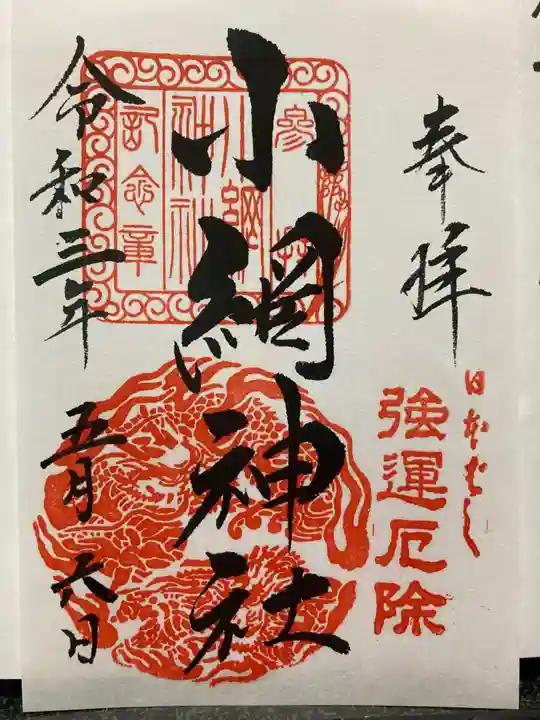 奉拝
日本ばし
強運厄除
小網神社
参拝
小網
神社
記念章
令和三年
五月六日